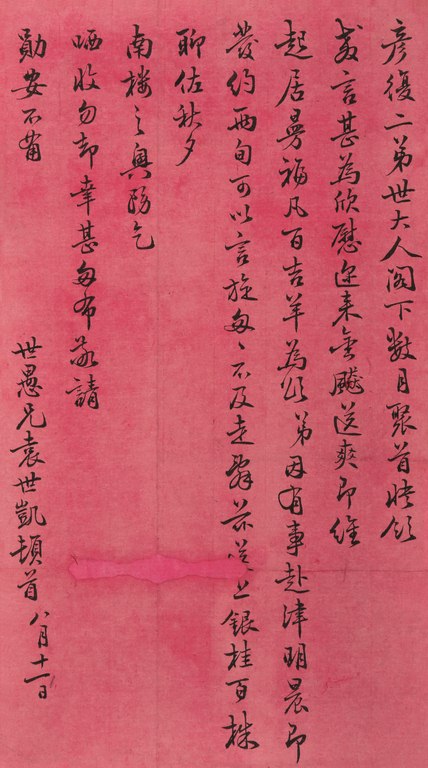 彥復二弟世大人閣下數月聚首快領
教言甚為欣慰邇來金飈送爽即維
起居曼福凡百吉羊為頌弟因有事赴津明晨即
發約兩旬可以言旋匆匆不及走辭茲送上銀桂百株
聊佐秋夕
南樓之興務乞
哂收勿却幸甚匆布敬請
勛安不莆
世愚兄袁世凱頓首八月十一日